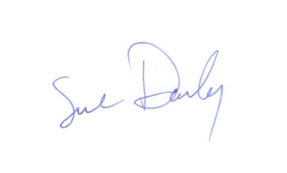 Sue Darley